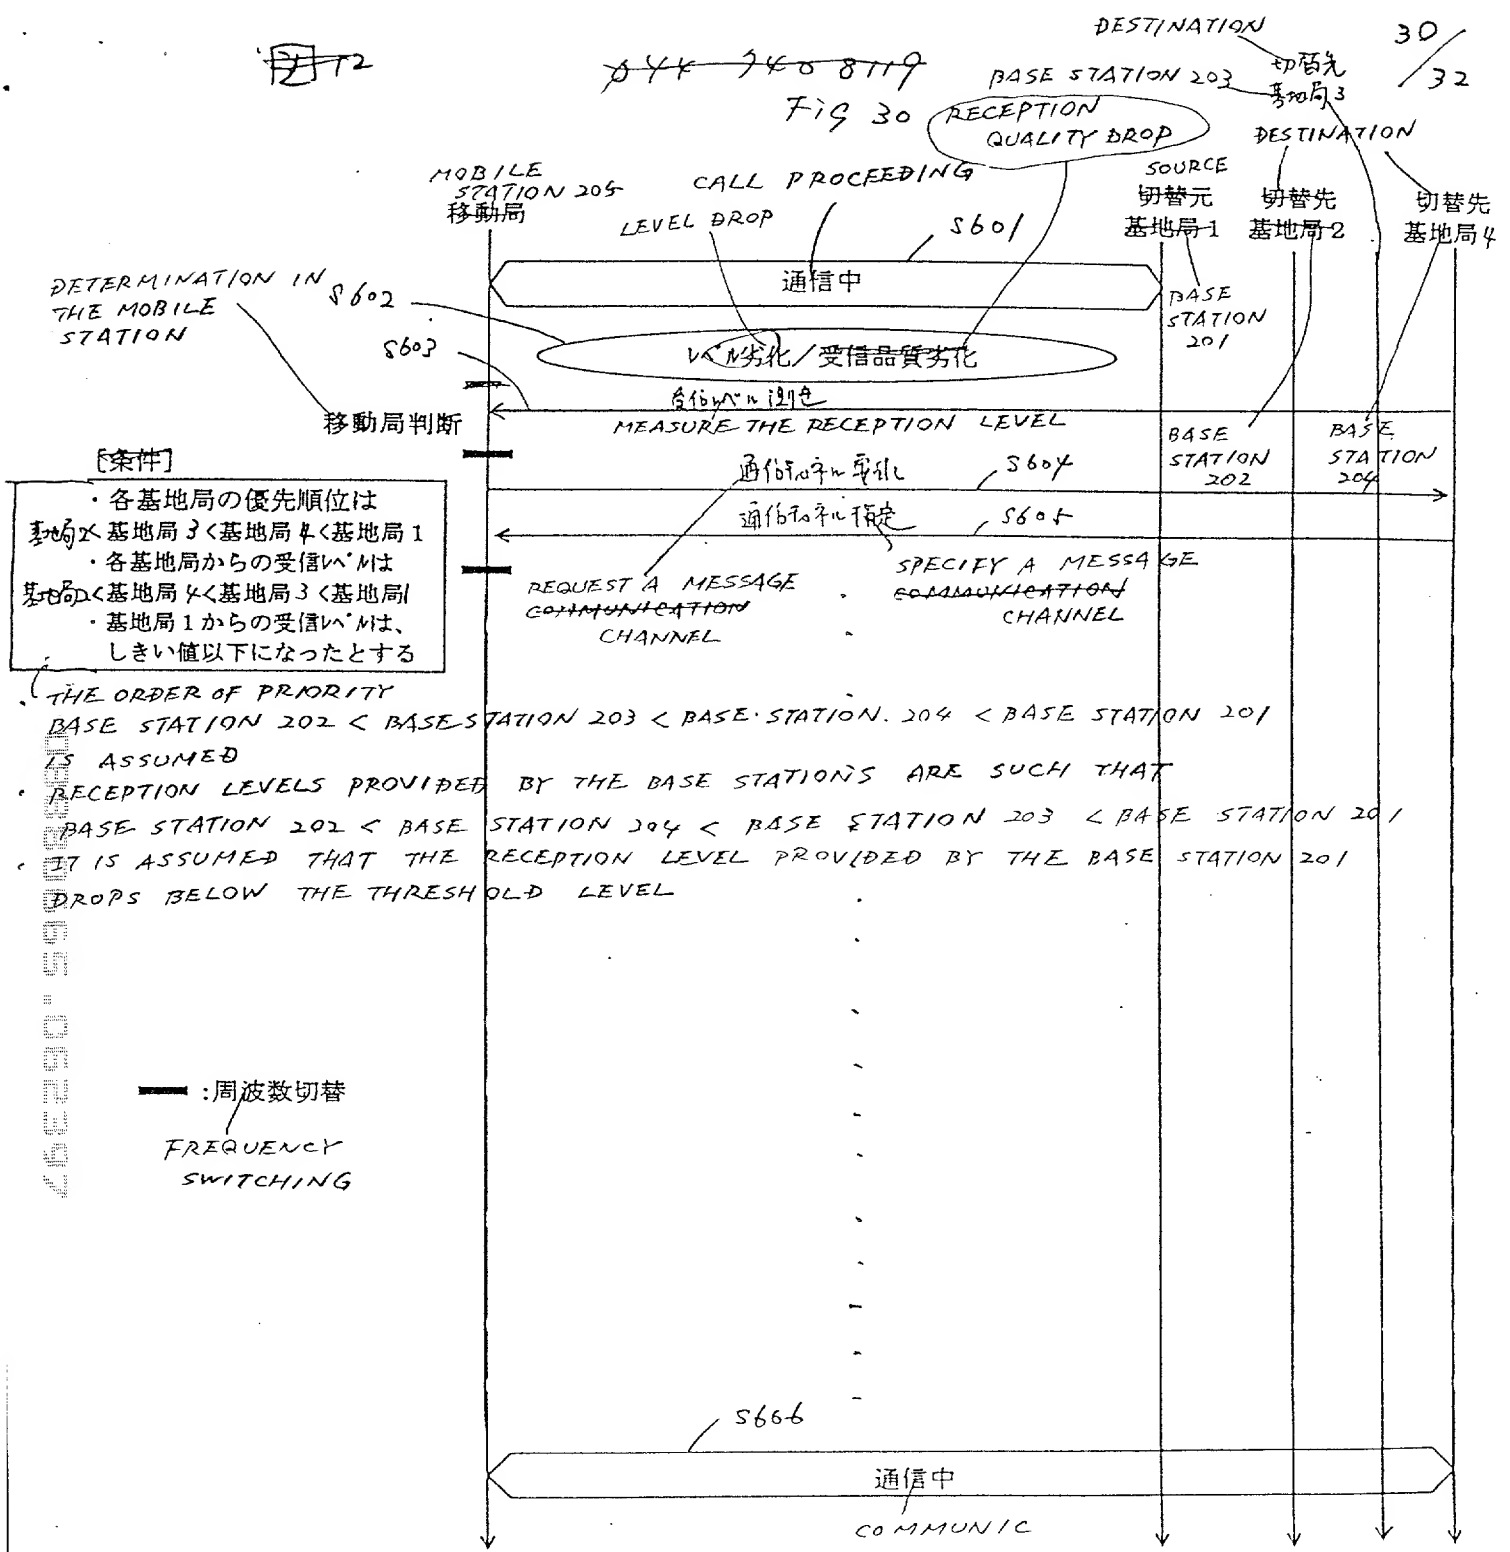 DESTINATION
30/32
図12
044 740 8119
切替先
BASE STATION 203
基地局3
Fig 30
RECEPTION
QUALITY DROP
DESTINATION
MOBILE
STATION 205
移動局
CALL PROCEEDING
SOURCE
切替元
基地局1
切替先
基地局2
切替先
基地局4
LEVEL DROP
S601
通信中
DETERMINATION IN
THE MOBILE
STATION
S602
BASE
STATION
201
S603
レベル劣化/受信品質劣化
受信レベル測定
MEASURE THE RECEPTION LEVEL
移動局判断
BASE
STATION
202
BASE
STATION
204
[条件]
S604
・各基地局の優先順位は
基地局2<基地局3<基地局4<基地局1
・各基地局からの受信レベルは
基地局2<基地局4<基地局3<基地局1
・基地局1からの受信レベルは、
しきい値以下になったとする
通信チャネル指定
S605
REQUEST A MESSAGE
COMMUNICATION
CHANNEL
SPECIFY A MESSAGE
COMMUNICATION
CHANNEL
・THE ORDER OF PRIORITY
BASE STATION 202 < BASE STATION 203 < BASE STATION. 204 < BASE STATION 201
IS ASSUMED
・RECEPTION LEVELS PROVIDED BY THE BASE STATIONS ARE SUCH THAT
BASE STATION 202 < BASE STATION 204 < BASE STATION 203 < BASE STATION 201
・IT IS ASSUMED THAT THE RECEPTION LEVEL PROVIDED BY THE BASE STATION 201
DROPS BELOW THE THRESHOLD LEVEL
:周波数切替
FREQUENCY
SWITCHING
S606
通信中
COMMUNIC